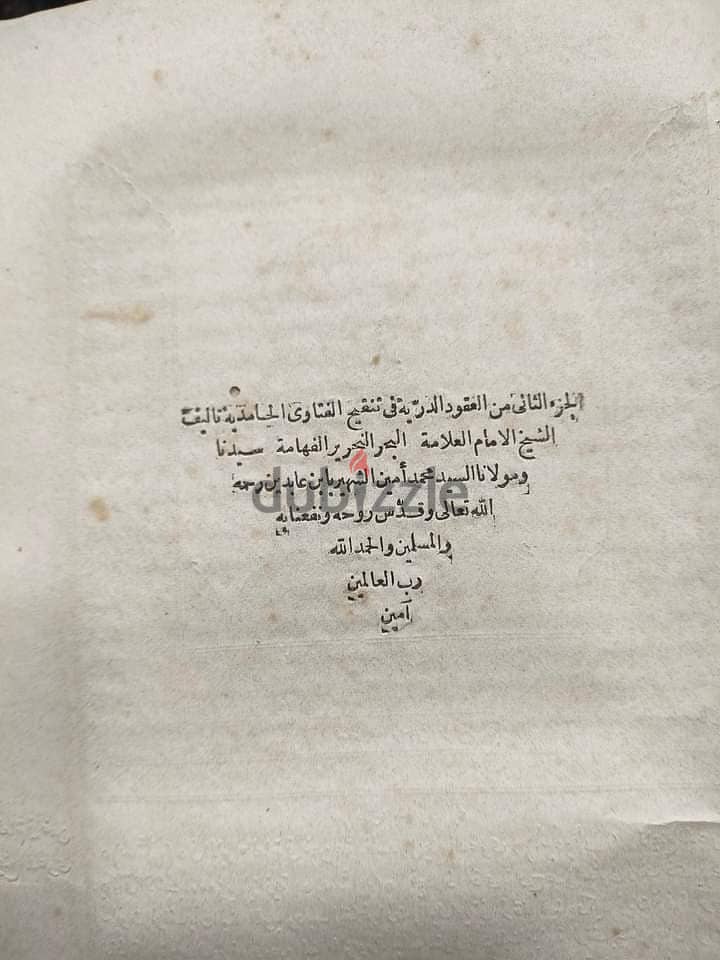 الجزء الثانى من العقود الدرية فى تنقيح الفتاوى الحامدية تاليف
الشيخ الامام العلامة البحر النحرير الفهامة سيدنا
ومولانا السيد محمد أمين الشهير بابن عابدين رحمه
الله تعالى وقدّس روحه ونفعنا به
والمسلمين والحمد لله
رب العالمين
آمين
dubizzle